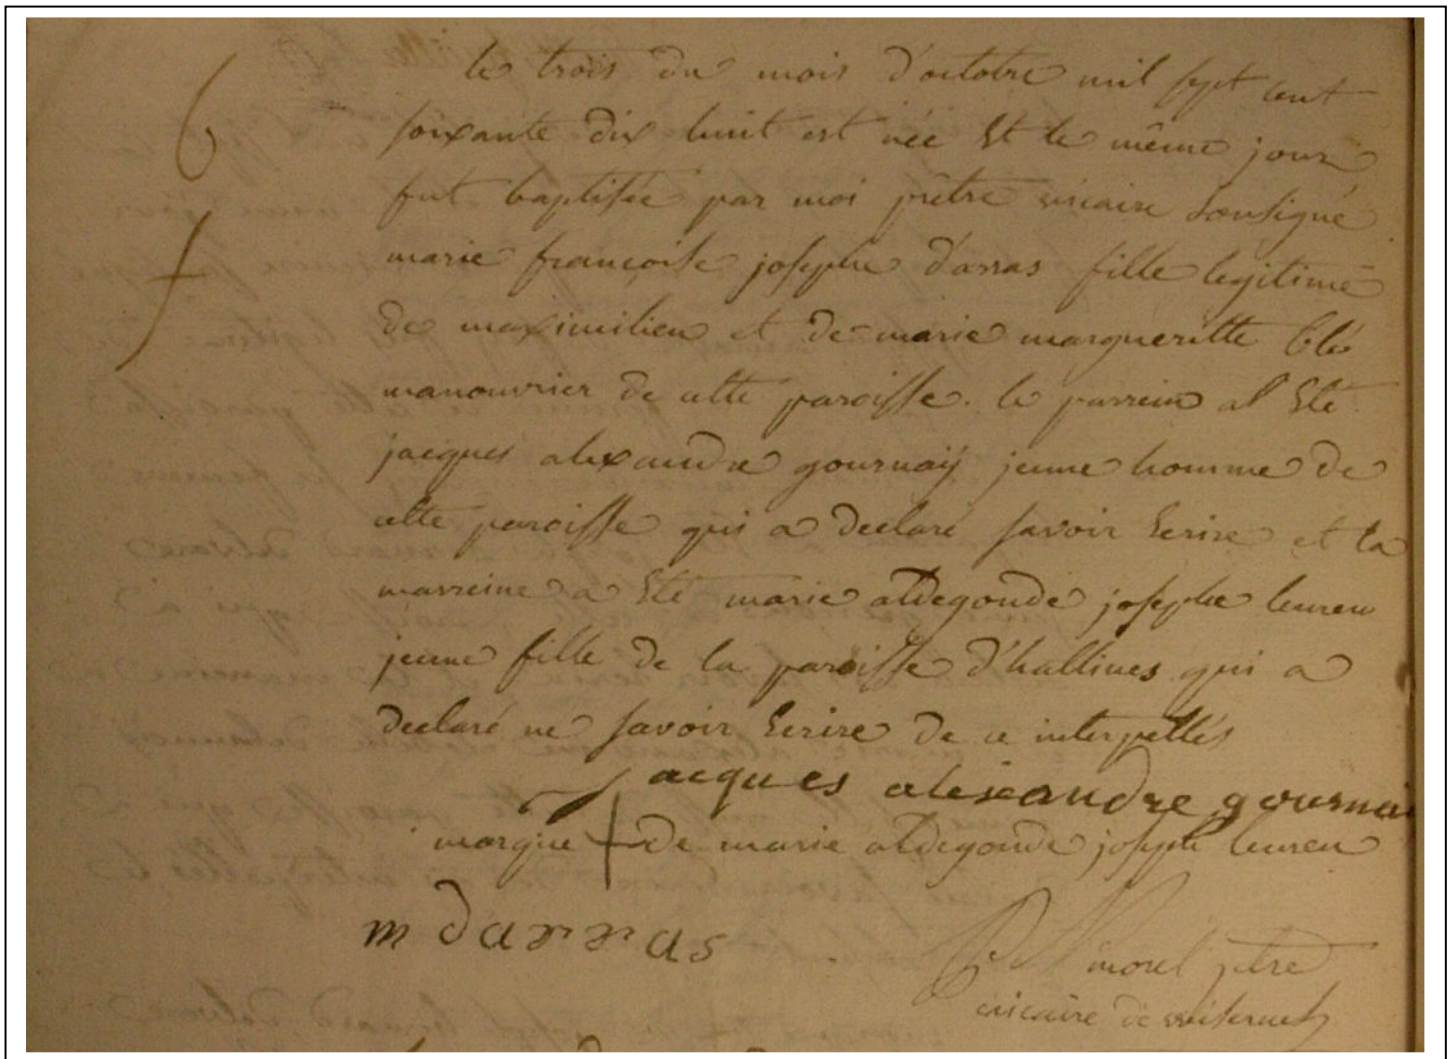 le trois du mois d'octobre mil sept cent
b
soixante dix huit est née Et le même jour
fut baptisée par moi prêtre vicaire soussigné
marie françoise josephe d'arras fille legitime
f
de maximilien et de marie margueritte blé
manouvrier de cette paroisse. le parrein a Eté
jacques alexandre gournaÿ jeune homme de
cette paroisse qui a declaré savoir Ecrire et la
marreine a Eté marie aldegonde josephe leureu
jeune fille de la paroisse d'hallines qui a
declaré ne savoir Ecrire de ce interpellés
jacques alexandre gournai
marque de marie aldegonde joseph leureu
m darras
morel ptre
vicaire de